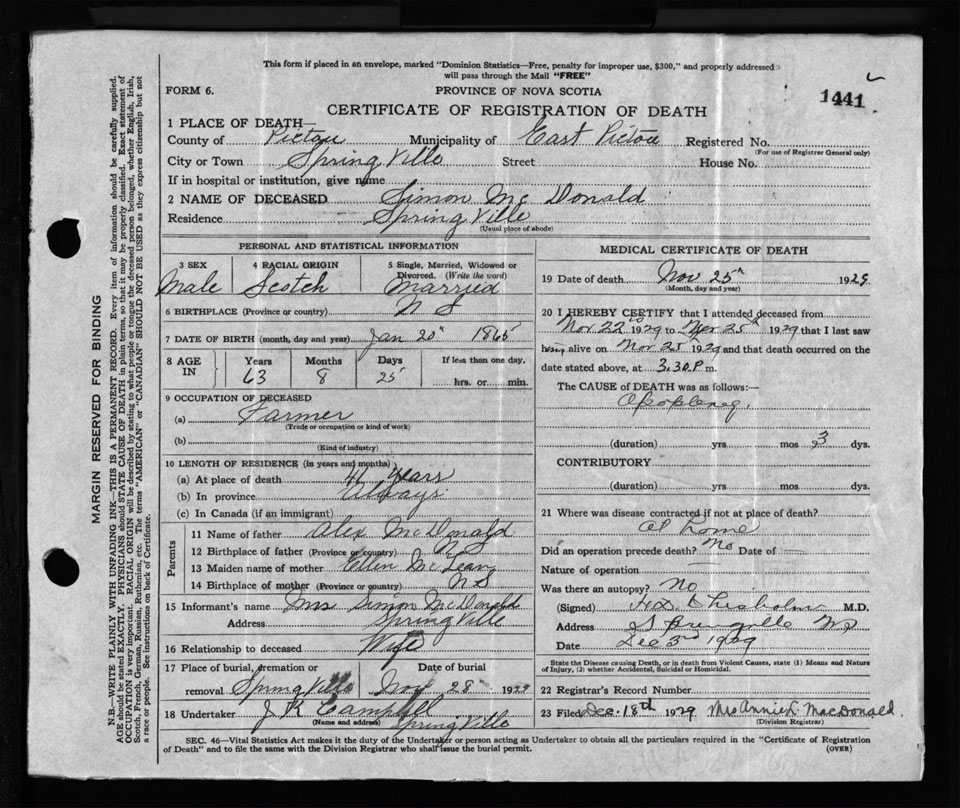 This form if placed in an envelope, marked "Dominion Statistics—Free, penalty for improper use, $300," and properly addressed
will pass through the Mail "FREE"
FORM 6.
PROVINCE OF NOVA SCOTIA
1441
CERTIFICATE OF REGISTRATION OF DEATH
1 PLACE OF DEATH—
County of Pictou Municipality of East Pictou Registered No.
(For use of Registrar General only)
City or Town Spring Ville Street House No.
If in hospital or institution, give name
2 NAME OF DECEASED Simon Mc Donald
Residence Spring Ville
(Usual place of abode)
MARGIN RESERVED FOR BINDING
N.B.—WRITE PLAINLY WITH UNFADING INK—THIS IS A PERMANENT RECORD. Every item of information should be carefully supplied.
AGE should be stated EXACTLY. PHYSICIANS should STATE CAUSE OF DEATH in plain terms, so that it may be properly classified. Exact statement of
OCCUPATION is very important. RACIAL ORIGIN will be described by stating to what people or tongue the deceased person belonged, whether English, Irish,
Scotch, French, German, Russian, Ruthenian, etc. The terms "AMERICAN" or "CANADIAN" SHOULD NOT BE USED as they express citizenship but not
a race or people. See instructions on back of Certificate.
PERSONAL AND STATISTICAL INFORMATION
3 SEX
Male
4 RACIAL ORIGIN
Scotch
5 Single, Married, Widowed or
Divorced. (Write the word)
Married
6 BIRTHPLACE (Province or country) N S
7 DATE OF BIRTH (month, day and year) Jan 20th 1865
8 AGE IN
Years Months Days If less than one day,
63 8 25 hrs. or min.
9 OCCUPATION OF DECEASED
(a) Farmer
(Trade or occupation or kind of work)
(b)
(Kind of industry)
10 LENGTH OF RESIDENCE (in years and months)
(a) At place of death 41 Years
(b) In province Always
(c) In Canada (if an immigrant)
Parents
11 Name of father Alex McDonald
12 Birthplace of father (Province or country) N S
13 Maiden name of mother Ellen McLean
14 Birthplace of mother (Province or country) N S
15 Informant's name Mrs Simon McDonald
Address Spring Ville
16 Relationship to deceased Wife
17 Place of burial, cremation or Date of burial
removal Springville Nov 28 1929
18 Undertaker J K Campbell
(Name and address) Spring Ville
MEDICAL CERTIFICATE OF DEATH
19 Date of death Nov 25th 1929
(Month, day and year)
20 I HEREBY CERTIFY that I attended deceased from
Nov 22 1929 to Nov 25th 1929 that I last saw
him alive on Nov 25th 1929 and that death occurred on the
date stated above, at 3.30 P m.
The CAUSE OF DEATH was as follows:—
(duration) yrs mos 3 dys.
CONTRIBUTORY
(duration) yrs mos dys.
21 Where was disease contracted if not at place of death?
At home
Did an operation precede death? No Date of
Nature of operation
Was there an autopsy? No
(Signed) H.D. Chisholm M.D.
Address Springville NS
Date Dec 3rd 1929
State the Disease causing Death, or in death from Violent Causes, state (1) Means and Nature
of Injury, (2) whether Accidental, Suicidal or Homicidal.
22 Registrar's Record Number
23 Filed Dec. 18th 1929 Mrs Annie L MacDonald.
(Division Registrar)
SEC. 46—Vital Statistics Act makes it the duty of the Undertaker or person acting as Undertaker to obtain all the particulars required in the "Certificate of Registration
of Death" and to file the same with the Division Registrar who shall issue the burial permit.
(OVER)